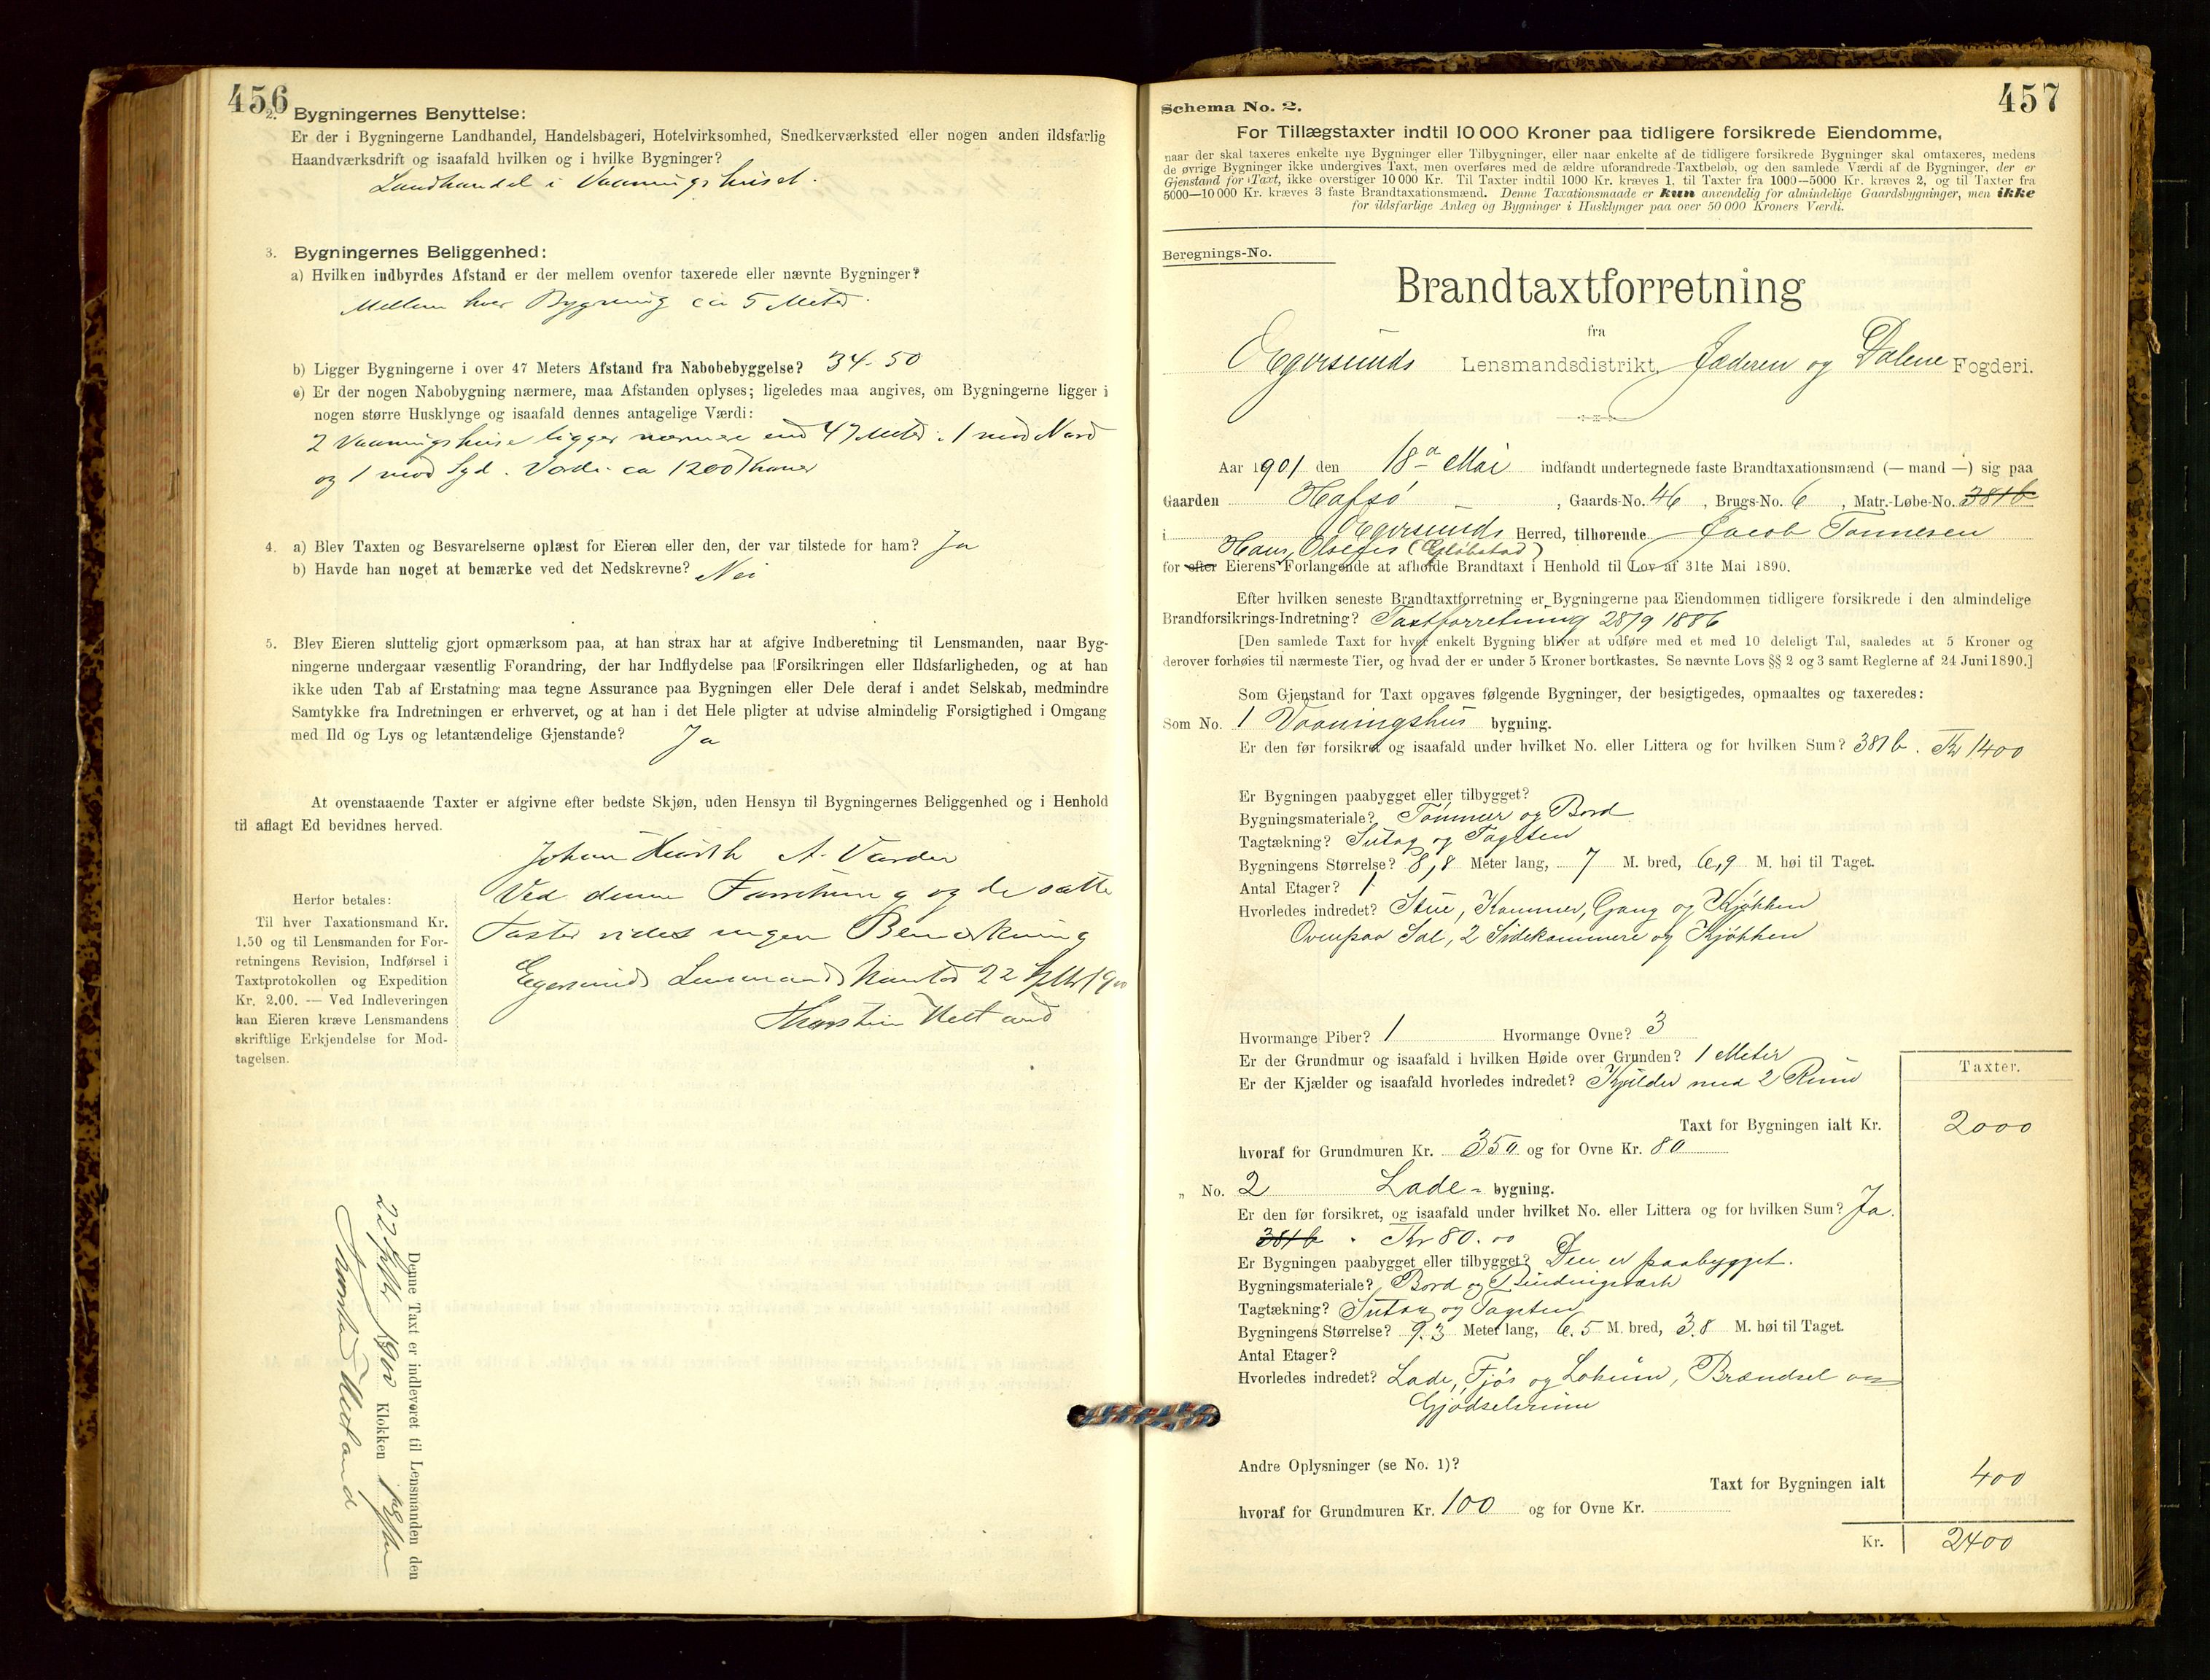 456
2. Bygningernes Benyttelse:
Er der i Bygningerne Landhandel, Handelsbageri, Hotelvirksomhed, Snedkerværksted eller nogen anden ildsfarlig
Haandværksdrift og isaafald hvilken og i hvilke Bygninger?
Landhandel i Vaaningshuset.
3. Bygningernes Beliggenhed:
a) Hvilken indbyrdes Afstand er der mellem ovenfor taxerede eller nævnte Bygninger?
Mellem hver Bygning ca 5 Meter.
b) Ligger Bygningerne i over 47 Meters Afstand fra Nabobebyggelse? 34-50
c) Er der nogen Nabobygning nærmere, maa Afstanden oplyses; ligeledes maa angives, om Bygningerne ligger i
nogen større Husklynge og isaafald dennes antagelige Værdi:
2 Vaaningshuse ligger nærmere end 47 Meter. 1 mod Nord
og 1 mod Syd. Værdi ca 1200 Kroner
4. a) Blev Taxten og Besvarelserne oplæst for Eieren eller den, der var tilstede for ham? Ja
b) Havde han noget at bemærke ved det Nedskrevne? Nei
5. Blev Eieren sluttelig gjort opmærksom paa, at han strax har at afgive Indberetning til Lensmanden, naar Byg-
ningerne undergaar væsentlig Forandring, der har Indflydelse paa Forsikringen eller Ildsfarligheden, og at han
ikke uden Tab af Erstatning maa tegne Assurance paa Bygningen eller Dele deraf i andet Selskab, medmindre
Samtykke fra Indretningen er erhvervet, og at han i det Hele pligter at udvise almindelig Forsigtighed i Omgang
med Ild og Lys og letantændelige Gjenstande? Ja
At ovenstaaende Taxter er afgivne efter bedste Skjøn, uden Hensyn til Bygningernes Beliggenhed og i Henhold
til aflagt Ed bevidnes herved.
Johan A.
Ved denne Forretning og de satte
Taxter vides ingen Bemærkning
Egersunds Lensmandskontor 22
Herfor betales:
Til hver Taxationsmand Kr.
1.50 og til Lensmanden for For-
retningens Revision, Indførsel i
Taxtprotokollen og Expedition
Kr. 2.00. — Ved Indleveringen
kan Eieren kræve Lensmandens
skriftlige Erkjendelse for Mod-
tagelsen.
Denne Taxt er indleveret til Lensmanden den
22 Klokken
457
Schema No. 2.
For Tillægstaxter indtil 10 000 Kroner paa tidligere forsikrede Eiendomme,
naar der skal taxeres enkelte nye Bygninger eller Tilbygninger, eller naar enkelte af de tidligere forsikrede Bygninger skal omtaxeres, medens
de øvrige Bygninger ikke undergives Taxt, men overføres med de ældre uforandrede Taxtbeløb, og den samlede Værdi af de Bygninger, der er
Gjenstand for Taxt, ikke overstiger 10 000 Kr. Til Taxter indtil 1000 Kr. kræves 1, til Taxter fra 1000—5000 Kr. kræves 2, og til Taxter fra
5000—10 000 Kr. kræves 3 faste Brandtaxationsmænd. Denne Taxationsmaade er kun anvendelig for almindelige Gaardsbygninger, men ikke
for ildsfarlige Anlæg og Bygninger i Husklynger paa over 50 000 Kroners Værdi.
Beregnings-No.
Brandtaxtforretning
fra
Egersunds Lensmandsdistrikt, Jæderen og Dalene Fogderi.
Aar 1901 den 18de Mai indfandt undertegnede faste Brandtaxationsmænd (— mand —) sig paa
Gaarden Hafsö, Gaards-No. 46, Brugs-No. 6, Matr.-Løbe-No. 381b
i Egersunds Herred, tilhørende Jacob Tønnesen
Hans Olsens
for efter Eierens Forlangende at afholde Brandtaxt i Henhold til Lov af 31te Mai 1890.
Efter hvilken seneste Brandtaxtforretning er Bygningerne paa Eiendommen tidligere forsikrede i den almindelige
Brandforsikrings-Indretning? Taxtforretning 28/9 1886
[Den samlede Taxt for hver enkelt Bygning bliver at udføre med et med 10 deleligt Tal, saaledes at 5 Kroner og
derover forhøies til nærmeste Tier, og hvad der er under 5 Kroner bortkastes. Se nævnte Lovs §§ 2 og 3 samt Reglerne af 24 Juni 1890.]
Som Gjenstand for Taxt opgaves følgende Bygninger, der besigtigedes, opmaaltes og taxeredes:
Som No. 1 Vaaningshus bygning.
Er den før forsikret og isaafald under hvilket No. eller Littera og for hvilken Sum? 381b. Kr 1400
Er Bygningen paabygget eller tilbygget?
Bygningsmateriale? Tömmer og Bord
Tagtækning? Sutag og Tagsten
Bygningens Størrelse? 8,8 Meter lang, 7 M. bred, 6,9 M. høi til Taget.
Antal Etager? 1
Hvorledes indredet? Stue, Kammer, Gang og Kjøkken
Ovenpaa Sal, 2 Sidekammere og Kjøkken
Hvormange Piber? 1 Hvormange Ovne? 3
Er der Grundmur og isaafald i hvilken Høide over Grunden? 1 Meter
Er der Kjælder og isaafald hvorledes indredet? Kjelder med 2 Rum
Taxter.
Taxt for Bygningen ialt Kr. 2000
hvoraf for Grundmuren Kr. 350 og for Ovne Kr. 80
" No. 2 Lade- bygning.
Er den før forsikret, og isaafald under hvilket No. eller Littera og for hvilken Sum? Ja.
381b. Kr 80.00
Er Bygningen paabygget eller tilbygget? Den er paabygget.
Bygningsmateriale? Bord og Bindingsværk
Tagtækning? Sutag og Tagsten
Bygningens Størrelse? 9.3 Meter lang, 6.5 M. bred, 3.8 M. høi til Taget.
Antal Etager?
Hvorledes indredet? Lade, Fjøs og Lokum, Brændsel og
Gjødselsrum
Andre Oplysninger (se No. 1)?
Taxt for Bygningen ialt 400
hvoraf for Grundmuren Kr. 100 og for Ovne Kr.
Kr. 2400